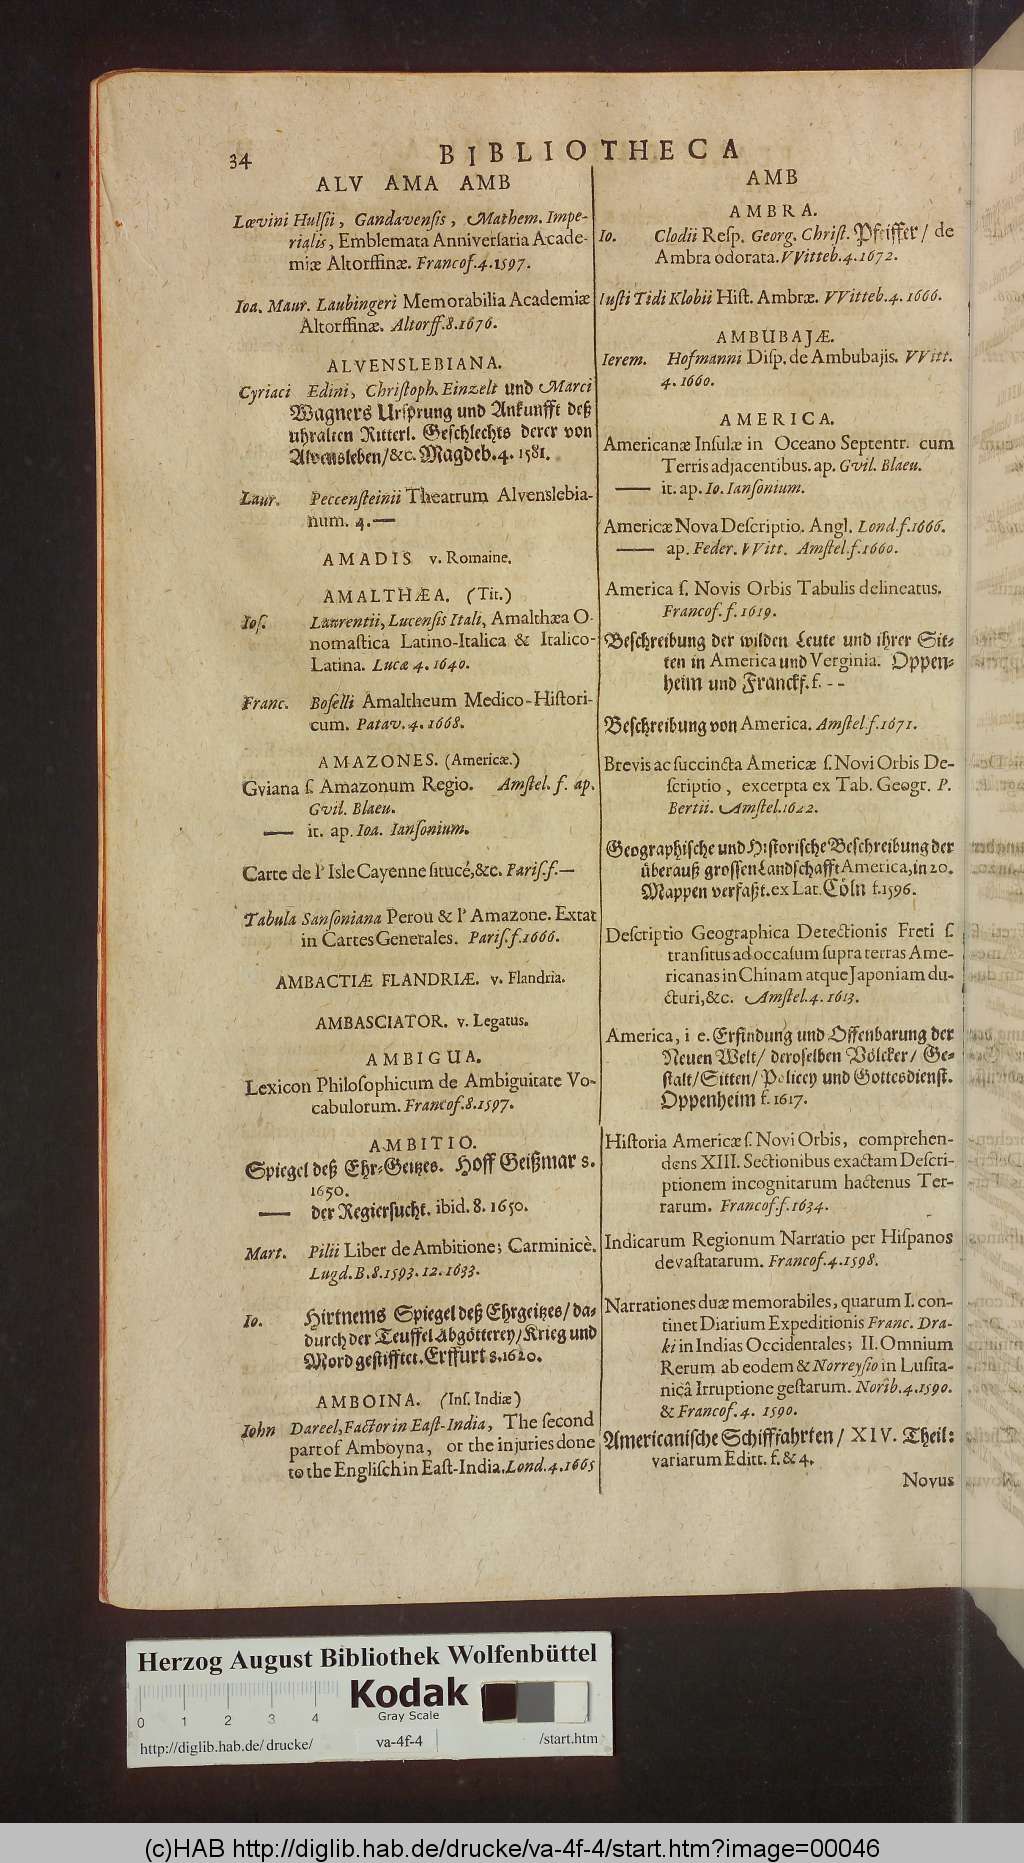 34
BIBLIOTHECA
ALV AMA AMB
Lævini Hulsii, Gandavensis, Mathem. Impe-
rialis, Emblemata Anniversaria Acade-
miæ Altorffinæ. Francof. 4. 1597.
Ioa. Maur. Laubingeri Memorabilia Academiæ
Altorffinæ. Altorff. 8. 1676.
ALVENSLEBIANA.
Cyriaci Edini, Christoph. Einzelt und Marci
Wagners Ursprung und Ankunfft deß
uhralten Ritterl. Geschlechts derer von
Alvensleben/&c. Magdeb. 4. 1581.
Laur. Peccensteinii Theatrum Alvenslebia-
num. 4. —
AMADIS v. Romaine.
AMALTHÆA. (Tit.)
Ios. Laurentii, Lucensis Itali, Amalthæa O-
nomastica Latino-Italica & Italico-
Latina. Lucæ 4. 1640.
Franc. Boselli Amaltheum Medico-Histori-
cum. Patav. 4. 1668.
AMAZONES. (Americæ.)
Gviana s. Amazonum Regio. Amstel. f. ap.
Gvil. Blaeu.
— it. ap. Ioa. Iansonium.
Carte de l'Isle Cayenne situcé, &c. Paris. f. —
Tabula Sansoniana Perou & l'Amazone. Extat
in Cartes Generales. Paris. f. 1666.
AMBACTIÆ FLANDRIÆ. v. Flandria.
AMBASCIATOR. v. Legatus.
AMBIGUA.
Lexicon Philosophicum de Ambiguitate Vo-
cabulorum. Francof. 8. 1597.
AMBITIO.
Spiegel deß Ehr-Geitzes. Hoff Geißmar 8.
1650.
— der Regiersucht. ibid. 8. 1650.
Mart. Pilii Liber de Ambitione; Carminicè.
Lugd. B. 8. 1593. 12. 1633.
Io. Hirtnems Spiegel deß Ehrgeitzes/ da-
durch der Teuffel Abgötterey/ Krieg und
Mord gestifftet. Erffurt 8. 1620.
AMBOINA. (Ins. Indiæ)
Iohn Dareel, Factor in East-India, The second
part of Amboyna, or the injuries done
to the English in East-India. Lond. 4. 1665
AMB
AMBRA.
Io. Clodii Resp. Georg. Christ. Pfeiffer/ de
Ambra odorata. VVitteb. 4. 1672.
Iusti Tidi Klobii Hist. Ambræ. VVitteb. 4. 1666.
AMBUBAJÆ.
Ierem. Hofmanni Disp. de Ambubajis. VVitt.
4. 1660.
AMERICA.
Americanæ Insulæ in Oceano Septentr. cum
Terris adjacentibus. ap. Gvil. Blaeu.
— it. ap. Io. Iansonium.
Americæ Nova Descriptio. Angl. Lond. f. 1666.
— ap. Feder. VVitt. Amstel. f. 1660.
America s. Novis Orbis Tabulis delineatus.
Francof. f. 1619.
Beschreibung der wilden Leute und ihrer Sit-
ten in America und Verginia. Oppen-
heim und Franckf. f. - -
Beschreibung von America. Amstel. f. 1671.
Brevis ac succincta Americæ s. Novi Orbis De-
scriptio, excerpta ex Tab. Geogr. P.
Bertii. Amstel. 1622.
Geographische und Historische Beschreibung der
überauß grossen Landschafft America, in 20.
Mappen verfaßt. ex Lat. Cöln f. 1596.
Descriptio Geographica Detectionis Freti s.
transitus ad occasum supra terras Ame-
ricanas in Chinam atque Japoniam du-
cturi, &c. Amstel. 4. 1613.
America, i e. Erfindung und Offenbarung der
Neuen Welt/ deroselben Völcker/ Ge-
stalt/ Sitten/ Policey und Gottesdienst.
Oppenheim f. 1617.
Historia Americæ s. Novi Orbis, comprehen-
dens XIII. Sectionibus exactam Descri-
ptionem incognitarum hactenus Ter-
rarum. Francof. f. 1634.
Indicarum Regionum Narratio per Hispanos
devastatarum. Francof. 4. 1598.
Narrationes duæ memorabiles, quarum I. con-
tinet Diarium Expeditionis Franc. Dra-
ki in Indias Occidentales; II. Omnium
Rerum ab eodem & Norreysio in Lusita-
nicâ Irruptione gestarum. Norib. 4. 1590.
& Francof. 4. 1590.
Americanische Schifffahrten/ XIV. Theil:
variarum Editt. f. & 4.
Novus
Herzog August Bibliothek Wolfenbüttel
Kodak
Gray Scale
0 1 2 3 4
http://diglib.hab.de/drucke/ va-4f-4 /start.htm
(c)HAB http://diglib.hab.de/drucke/va-4f-4/start.htm?image=00046